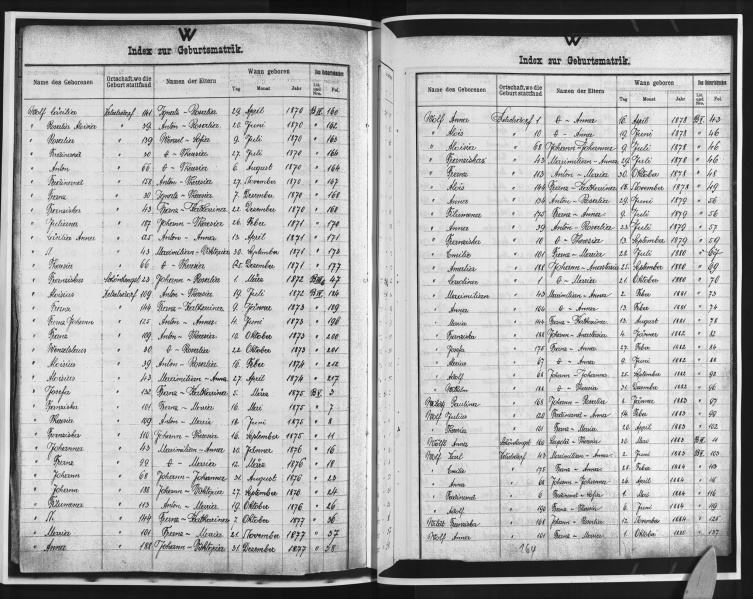 W
Index zur Geburtsmatrik.
Name des Geborenen Ortschaft, wo die Geburt stattfand Namen der Eltern Wann geboren Das Geburtsbuches
Tag Monat Jahr Lit. und Nro. Fol.
Wolf 141 Ignatz - Rosalia 29 April 1870 160
" Rosalia Aloisia " 39 Anton - Rosalia 20 Juni 1870 " 162
" Rosalia " 139 Wenzel - Sofia 9 Juli 1870 " 163
" Ferdinand " 30 - Theresia 27 Juli 1870 " 164
" Anton " 66 - Theresia 6 August 1870 " 164
" Ferdinand " 158 Anton - Theresia 27 November 1870 " 167
" Franz " 30 Ignatz - Theresia 7 Dezember 1870 " 168
" Franziska " 43 Franz - Katharina 22 Dezember 1870 " 168
" Juliana " 187 Johann - Theresia 26 Feber 1871 " 170
" Anna " 125 Anton - Anna 13 April 1871 " 171
" N. " 43 Maximilian - 30 September 1871 " 174
" Theresia " 66 - Theresia 25 Dezember 1871 " 177
" Franziskus Schönhengst 23 Johann - Rosalia 1 März 1872 47
" Aloisius 109 Anton - Theresia 19 Juli 1872 184
" Franz " 144 Franz - Katharina 9 Jänner 1873 " 189
" Franz Johann " 125 Anton - Anna 4 Juni 1873 " 196
" Franz " 109 Anton - Theresia 12 Oktober 1873 " 200
" Wenzelslaus " 30 - Rosalia 22 Oktober 1873 " 201
" Aloisius " 39 Anton - Rosalia 16 Feber 1874 " 212
" Aloisius " 43 Maximilian - Anna 27 April 1874 " 217
" Josefa " 132 Franz - Katharina 5 März 1875 3
" Franziska " 101 Franz - Maria 16 Mai 1875 " 7
" Theresia " 109 Anton - Maria 18 Juni 1875 " 8
" Franziska " 110 Johann - Theresia 16 September 1875 " 11
" Johanna " 43 Maximilian - Anna 20 Jänner 1876 " 16
" Franz " 99 - Maria 12 März 1876 " 18
" Johann " 68 Johann - Johanna 31 August 1876 " 23
" Johann " 188 Johann - 27 September 1876 " 24
" Filumena " 113 Anton - Maria 19 Oktober 1876 " 26
" N. " 144 Franz - Katharina 7 Oktober 1877 " 36
" Maria " 101 Franz - Maria 21 November 1877 " 37
" Anna " 188 Johann - 31 Dezember 1877 " 38
W
Index zur Geburtsmatrik.
Name des Geborenen Ortschaft, wo die Geburt stattfand Namen der Eltern Wann geboren Das Geburtsbuches
Tag Monat Jahr Lit. und Nro. Fol.
Wolf Anna 1 - Anna 16 April 1878 43
" Alois " 10 - Anna 19 Juni 1878 " 46
" Aloisia " 68 Johann - Johanna 9 Juli 1878 " 46
" Franziskas " 43 Maximilian - Anna 29 Juli 1878 " 46
" Franz " 113 Anton - Maria 30 Oktober 1878 " 48
" Alois " 144 Franz - Katharina 18 November 1878 " 49
" Anna " 134 Anton - Rosalia 29 Juni 1879 " 56
" Filumena " 175 Franz - Anna 9 Juli 1879 " 56
" Anna " 39 Anton - Rosalia 23 Juli 1879 " 57
" Franziska " 10 - Theresia 13 September 1879 " 59
" Emilie " 101 Franz - Maria 22 Juli 1880 " 67
" Amalia " 188 Johann - Anastasia 25 September 1880 " 69
" Carolina " 1 - Maria 21 Oktober 1880 " 70
" Maximilian " 43 Maximilian - Anna 2 Feber 1881 " 73
" Anna " - Anna 13 Feber 1881 " 74
" Maria " 144 Franz - Katharina 13 August 1881 " 78
" Franziska " 188 Johann - Anastasia 4 Jänner 1882 " 82
" Josefa " 175 Franz - Anna 27 Feber 1882 " 84
" " 67 - Anna 9 Juni 1882 " 88
" Adolf " 68 Johann - Johanna 25 September 1882 " 92
" " 188 - Theresia 31 Dezember 1882 " 96
Paulina " 168 Johann - Rosalia 2 Jänner 1883 " 97
Wolf Julius " 120 Ferdinand - Anna 14 Feber 1883 " 99
" Theresia " 101 Franz - Maria 20 April 1883 " 102
Anna Schönhengst - Theresia 30 Mai 1883 11
Wolf Karl 43 Maximilian - Anna 2 Juni 1883 103
" Emilie " 175 Franz - Anna 28 Feber 1884 " 113
" Anna " 68 Johann - Johanna 26 April 1884 " 115
" Ferdinand " 6 Ferdinand - Sofia 1 Mai 1884 " 116
" Adolf " 190 Franz - Theresia 6 Juni 1884 " 119
Franziska " 168 Johann - Rosalia 12 November 1884 " 125
Wolf Anna " 101 Franz - Maria 1 Oktober " 137
164